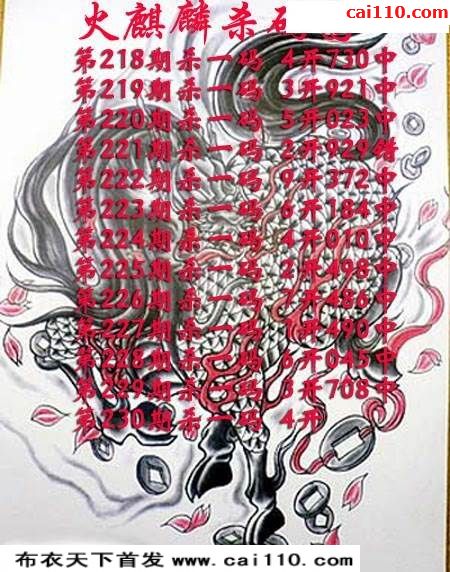 www.
cai110.com
火麒麟杀码
第218期杀一码 4开730中
第219期杀一码 3开921中
第220期杀一码 5开023中
第221期杀一码 2开929错
第222期杀一码 9开372中
第223期杀一码 6开184中
第224期杀一码 4开010中
第225期杀一码 2开498中
第226期杀一码 7开486中
第227期杀一码 1开490中
第228期杀一码 6开045中
第229期杀一码 3开708中
第230期杀一码 4开
布衣天下首发 www.cai110.com